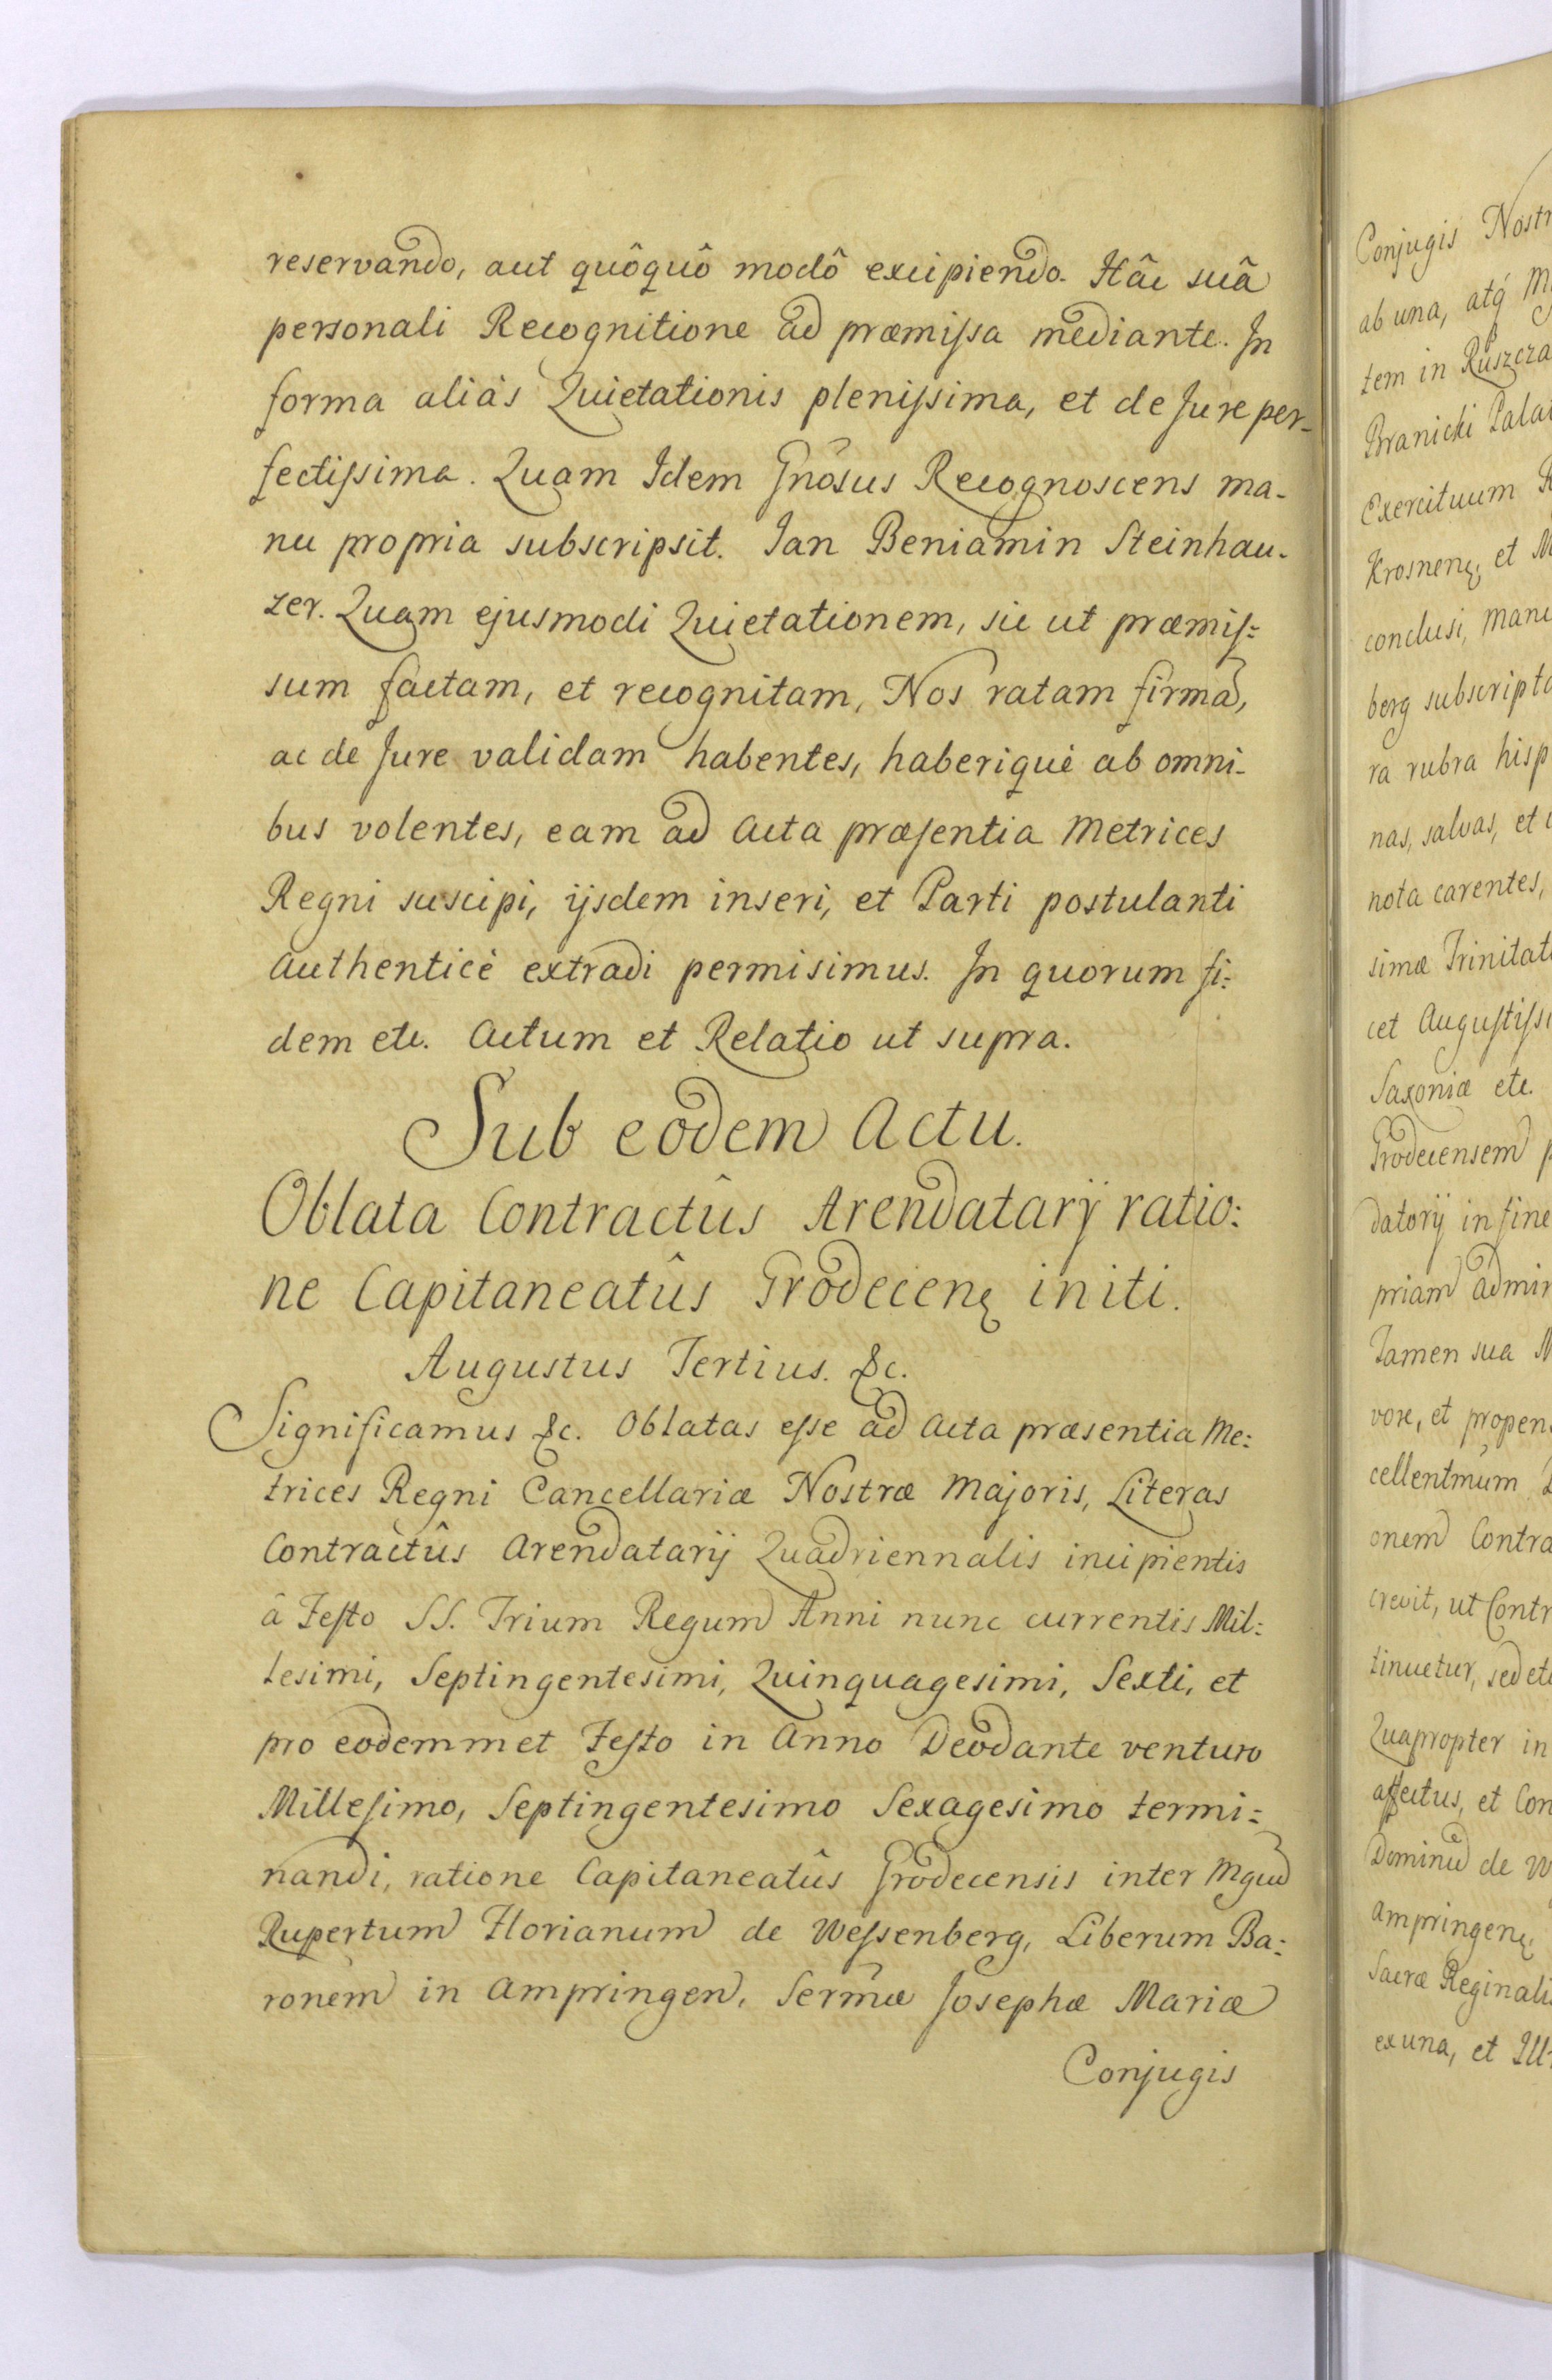 reservando, aut quôquô modô excipiendo. Hâc suâ
personali Recognitione ad præmissa mediante. In
forma aliàs Quietationis plenissima, et de Jure per-
fectissima. Quam Idem Gnosus Recognoscens ma-
nu propria subscripsit. Jan Beniamin Steinhau-
zer. Quam ejusmodi Quietationem, sic ut præmis:
sum factam, et recognitam, Nos ratam firmã,
ac de Jure validam habentes, haberiquè ab omni-
bus volentes, eam ad Acta præsentia Metrices
Regni suscipi, ijsdem inseri, et Parti postulanti
Authenticè extradi permisimus. In quorum fi:
dem etc. Actum et Relatio ut supra.
Sub eodem Actu.
Oblata Contractûs Arendatarij ratio:
ne Capitaneatûs Grodecenę initi.
Augustus Tertius. &c.
Significamus &c. Oblatas esse ad Acta præsentia Me:
trices Regni Cancellariæ Nostræ Majoris, Literas
Contractûs Arendatarij Quadriennalis incipientis
â Festo SS. Trium Regum Anni nunc currentis Mil:
lesimi, Septingentesimi, Quinquagesimi, Sexti, et
pro eodemmet Festo in Anno Deodante venturo
Millesimo, Septingentesimo Sexagesimo termi:
nandi, ratione Capitaneatûs Grodecensis inter Mgcũ
Rupertum Florianum de Wessenberg, Liberum Ba:
ronem in Ampringen, Sermæ Josephæ Mariæ
Conjugis
Conjugis Nostr
ab una, atq́ M
tem in Ruszcza
Branicki Palat
Exercituum R
Krosnenę, et M
conclusi, Manu
berg subscripta
ra rubra hisp
nas, salvas, et
nota carentes,
simæ Trinitati
cet Augustissi
Saxoniæ etc.
Grodecensem p
datorij in fine
priam admin
Tamen sua M
vore, et propen
cellentmum
onem Contra
crevit, ut Contr
tinuetur, sed eti
Quapropter in
affectus, et Con
Dominũ de W
Ampringenę
Sacræ Reginalis
ex una, et Ill